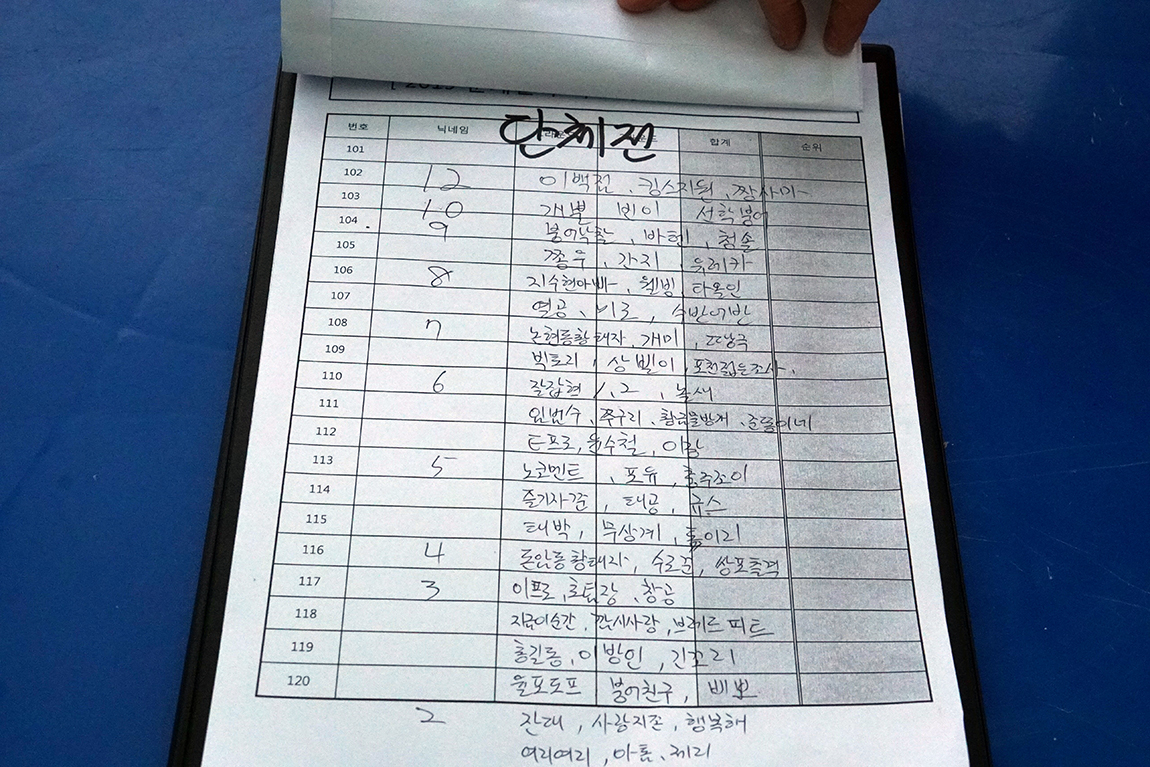 단체전
번호 닉네임 합계 순위
101
102 12 이백절、킹스지원、짱사미
103 10 개뿔 빈이 선학붕어
104 9 붕어낙찰、바헨、청솔
105 쫑우、간지、유레카
106 8 지수현아빠、웰빙 타옥인
107 열공、비로、수반어반
108 7 논현동황태자、개미、땅극
109 빅토리、상빌이、포천젊은조사
110 6 잘잡현 1、2、놀새
111 임범수、쭈구리、황금물방개、준돌이네
112 E프로、윤수철、이랑
113 5 노코멘트、포유、충주조이
114 즐기자꾼、태공、큐스
115 태박、무상계、톨이리
116 4 돈암동황태자、수로꾼、쌍포출격
117 3 이프로、초팀장、창공
118 지금이순간、낚시사랑、브레드피트
119 홍길동、이방인、긴꼬리
120 율포도프 붕어친구、삐뽀
2 잔태、사랑지존、행복해
여리여리、아톰、제리